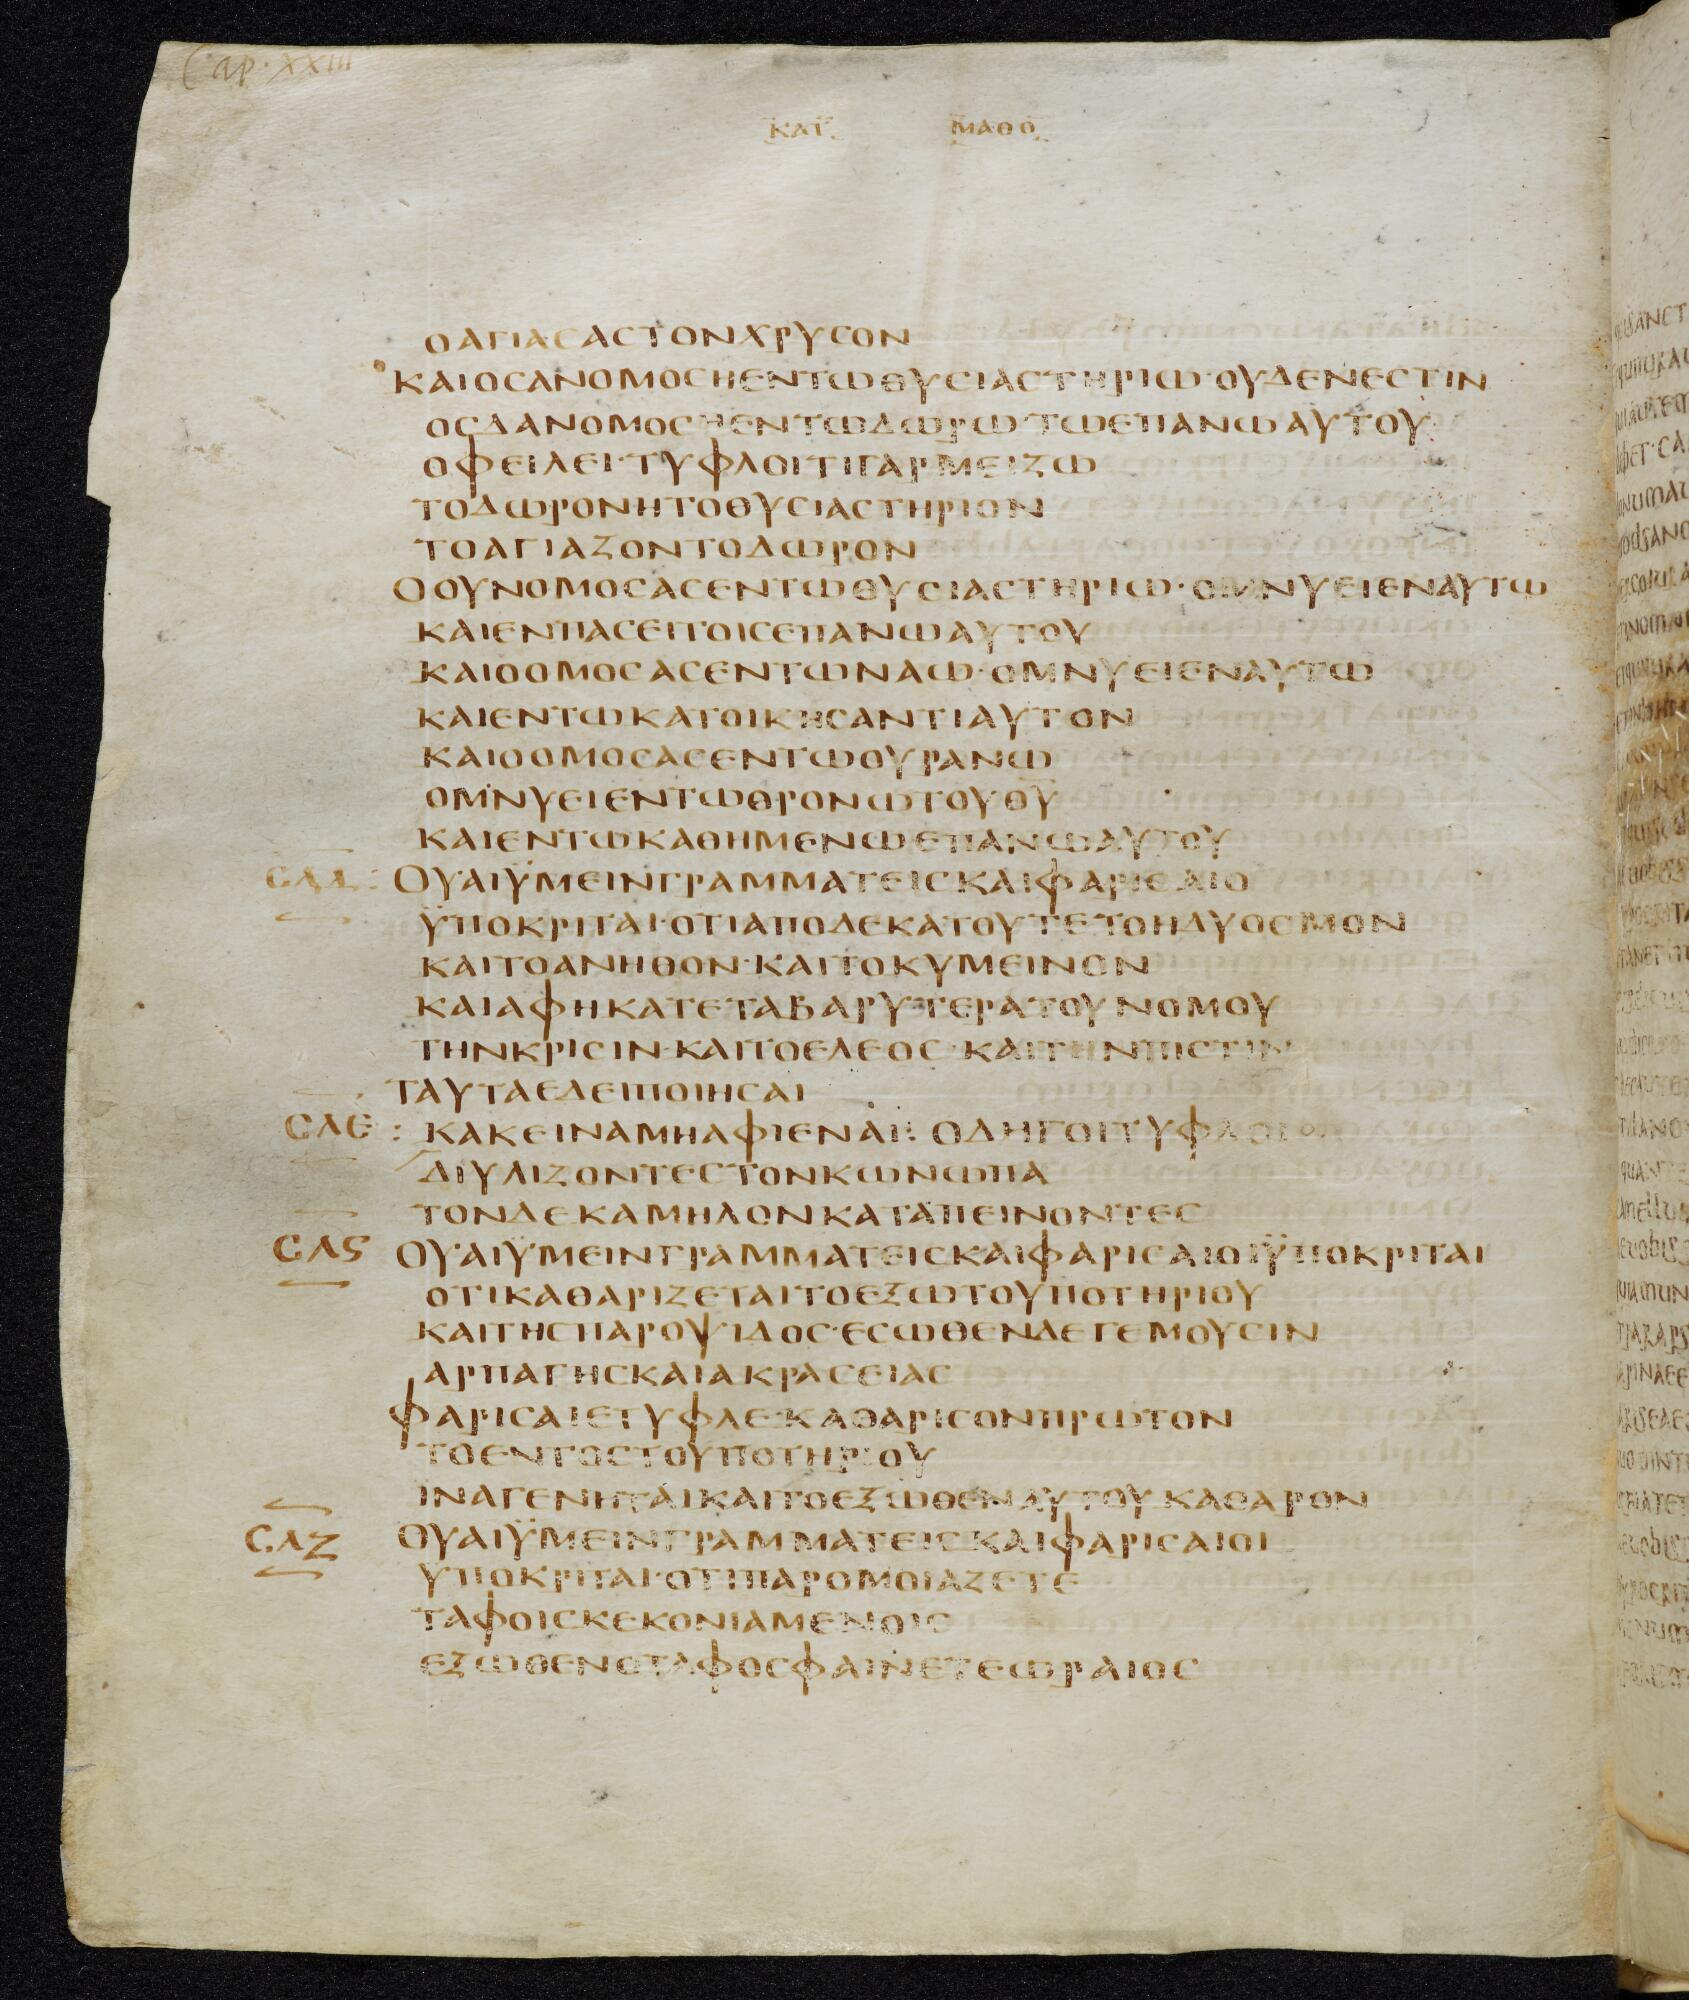 Cap. XXIII
ΚΑΤ ΜΑΘΘ
ΟΑΓΙΑCΑCΤΟΝΧΡΥCΟΝ
ΚΑΙΟCΑΝΟΜΟCΗΕΝΤΩΘΥCΙΑCΤΗΡΙΩ·ΟΥΔΕΝΕCΤΙΝ
ΟCΔΑΝΟΜΟCΗΕΝΤΩΔΩΡΩ·ΤΩΕΠΑΝΩΑΥΤΟΥ
ΟΦΕΙΛΕΙ·ΤΥΦΛΟΙΤΙΓΑΡΜΕΙΖΩ
ΤΟΔΩΡΟΝΗΤΟΘΥCΙΑCΤΗΡΙΟΝ
ΤΟΑΓΙΑΖΟΝΤΟΔΩΡΟΝ
ΟΟΥΝΟΜΟCΑCΕΝΤΩΘΥCΙΑCΤΗΡΙΩ·ΟΜΝΥΕΙΕΝΑΥΤΩ
ΚΑΙΕΝΠΑCΕΙΤΟΙCΕΠΑΝΩΑΥΤΟΥ
ΚΑΙΟΟΜΟCΑCΕΝΤΩΝΑΩ·ΟΜΝΥΕΙΕΝΑΥΤΩ
ΚΑΙΕΝΤΩΚΑΤΟΙΚΗCΑΝΤΙΑΥΤΟΝ
ΚΑΙΟΟΜΟCΑCΕΝΤΩΟΥΡΑΝΩ
ΟΜΝΥΕΙΕΝΤΩΘΡΟΝΩΤΟΥΘ̅Υ̅
ΚΑΙΕΝΤΩΚΑΘΗΜΕΝΩΕΠΑΝΩΑΥΤΟΥ
CΛΔ: ΟΥΑΙΫΜΕΙΝΓΡΑΜΜΑΤΕΙCΚΑΙΦΑΡΙCΑΙΟ
ΫΠΟΚΡΙΤΑΙ·ΟΤΙΑΠΟΔΕΚΑΤΟΥΤΕΤΟΗΔΥΟCΜΟΝ
ΚΑΙΤΟΑΝΗΘΟΝ·ΚΑΙΤΟΚΥΜΕΙΝΟΝ
ΚΑΙΑΦΗΚΑΤΕΤΑΒΑΡΥΤΕΡΑΤΟΥΝΟΜΟΥ
ΤΗΝΚΡΙCΙΝ·ΚΑΙΤΟΕΛΕΟC·ΚΑΙΤΗΝΠΙCΤΙΝ
ΤΑΥΤΑΕΔΕΙΠΟΙΗCΑΙ
CΛΕ : ΚΑΚΕΙΝΑΜΗΑΦΙΕΝΑΙ: ΟΔΗΓΟΙΤΥΦΛΟΙ
ΔΙΥΛΙΖΟΝΤΕCΤΟΝΚΩΝΩΠΑ
ΤΟΝΔΕΚΑΜΗΛΟΝΚΑΤΑΠΕΙΝΟΝΤΕC
CΛϚ ΟΥΑΙΫΜΕΙΝΓΡΑΜΜΑΤΕΙCΚΑΙΦΑΡΙCΑΙΟΙΫΠΟΚΡΙΤΑΙ
ΟΤΙΚΑΘΑΡΙΖΕΤΑΙΤΟΕΞΩΤΟΥΠΟΤΗΡΙΟΥ
ΚΑΙΤΗCΠΑΡΟΨΙΔΟC·ΕCΩΘΕΝΔΕΓΕΜΟΥCΙΝ
ΑΡΠΑΓΗCΚΑΙΑΚΡΑCΕΙΑC
ΦΑΡΙCΑΙΕΤΥΦΛΕ·ΚΑΘΑΡΙCΟΝΠΡΩΤΟΝ
ΤΟΕΝΤΟCΤΟΥΠΟΤΗΡΙΟΥ
ΙΝΑΓΕΝΗΤΑΙΚΑΙΤΟΕΞΩΘΕΝΑΥΤΟΥΚΑΘΑΡΟΝ
CΛΖ ΟΥΑΙΫΜΕΙΝΓΡΑΜΜΑΤΕΙCΚΑΙΦΑΡΙCΑΙΟΙ
ΥΠΟΚΡΙΤΑΙ·ΟΤΙΠΑΡΟΜΟΙΑΖΕΤΕ
ΤΑΦΟΙCΚΕΚΟΝΙΑΜΕΝΟΙC
ΕΞΩΘΕΝΟΤΑΦΟCΦΑΙΝΕΤΕΩΡΑΙΟC